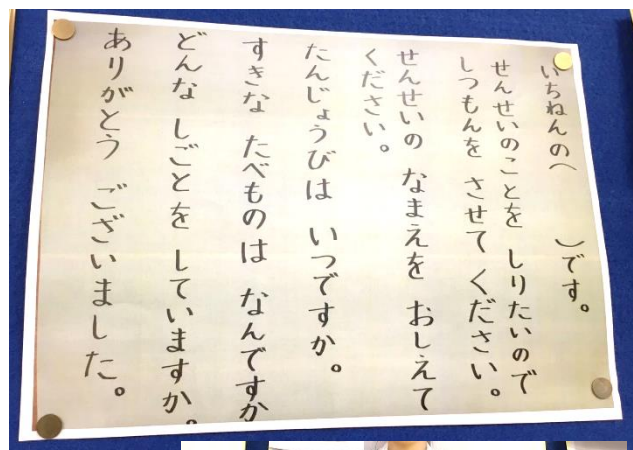 いちねんの（　　　）です。
せんせいのことを しりたいので
しつもんを させて ください。
せんせいの なまえを おしえて
ください。
たんじょうびは いつですか。
すきな たべものは なんですか
どんな しごとを していますか。
ありがとう ございました。